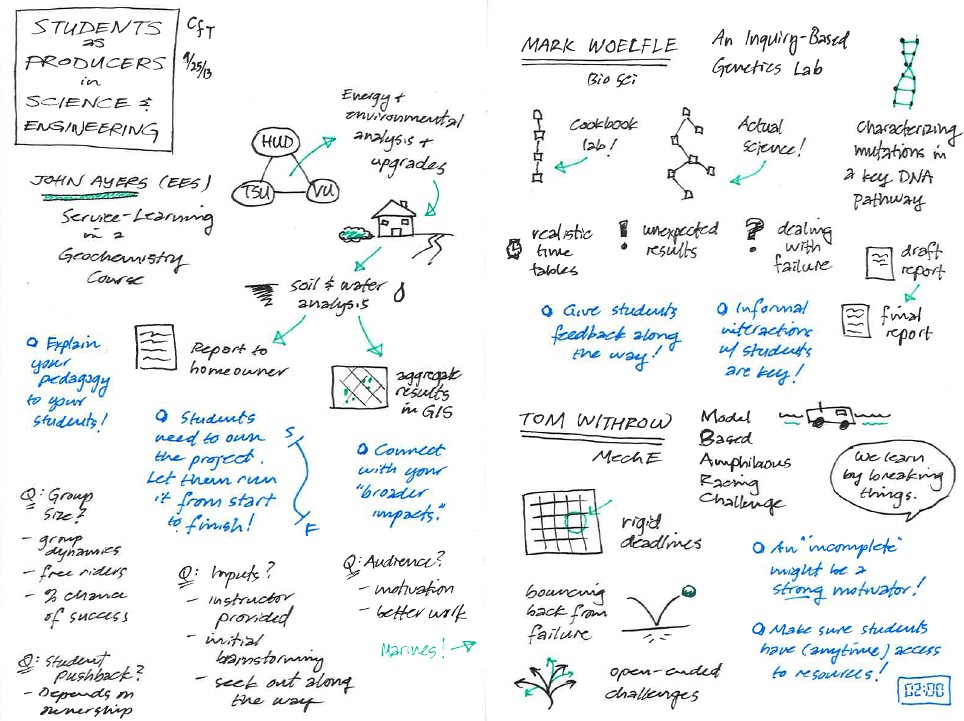 STUDENTS
as
PRODUCERS
in
SCIENCE &
ENGINEERING
CfT
9/25/13
JOHN AYERS (EES)
Service-Learning
in a
Geochemistry
Course
HUD
TSU
VU
Energy +
environmental
analysis +
upgrades
soil & water
analysis
Report to
homeowner
aggregate
results
in GIS
Explain
your
pedagogy
to your
students!
Students
need to own
the project.
Let them run
it from start
to finish!
S
F
Connect
with your
"broader
impacts."
Q: Group
size?
- group
dynamics
- free riders
- % chance
of success
Q: Student
pushback?
- Depends on
ownership
Q: Inputs?
- instructor
provided
- initial
brainstorming
- seek out along
the way
Q: Audience?
- motivation
- better work
Marines!
MARK WOELFLE
Bio Sci
An Inquiry-Based
Genetics Lab
Cookbook
lab!
Actual
science!
Characterizing
mutations in
a key DNA
pathway
realistic
time
tables
! unexpected
results
? dealing
with
failure
draft
report
final
report
Give students
feedback along
the way!
Informal
interactions
w/ students
are key!
TOM WITHROW
Mech E
Model
Based
Amphibious
Racing
Challenge
We learn
by breaking
things.
rigid
deadlines
bouncing
back from
failure
open-ended
challenges
An "incomplete"
might be a
strong motivator!
Make sure students
have (anytime) access
to resources!
02:00